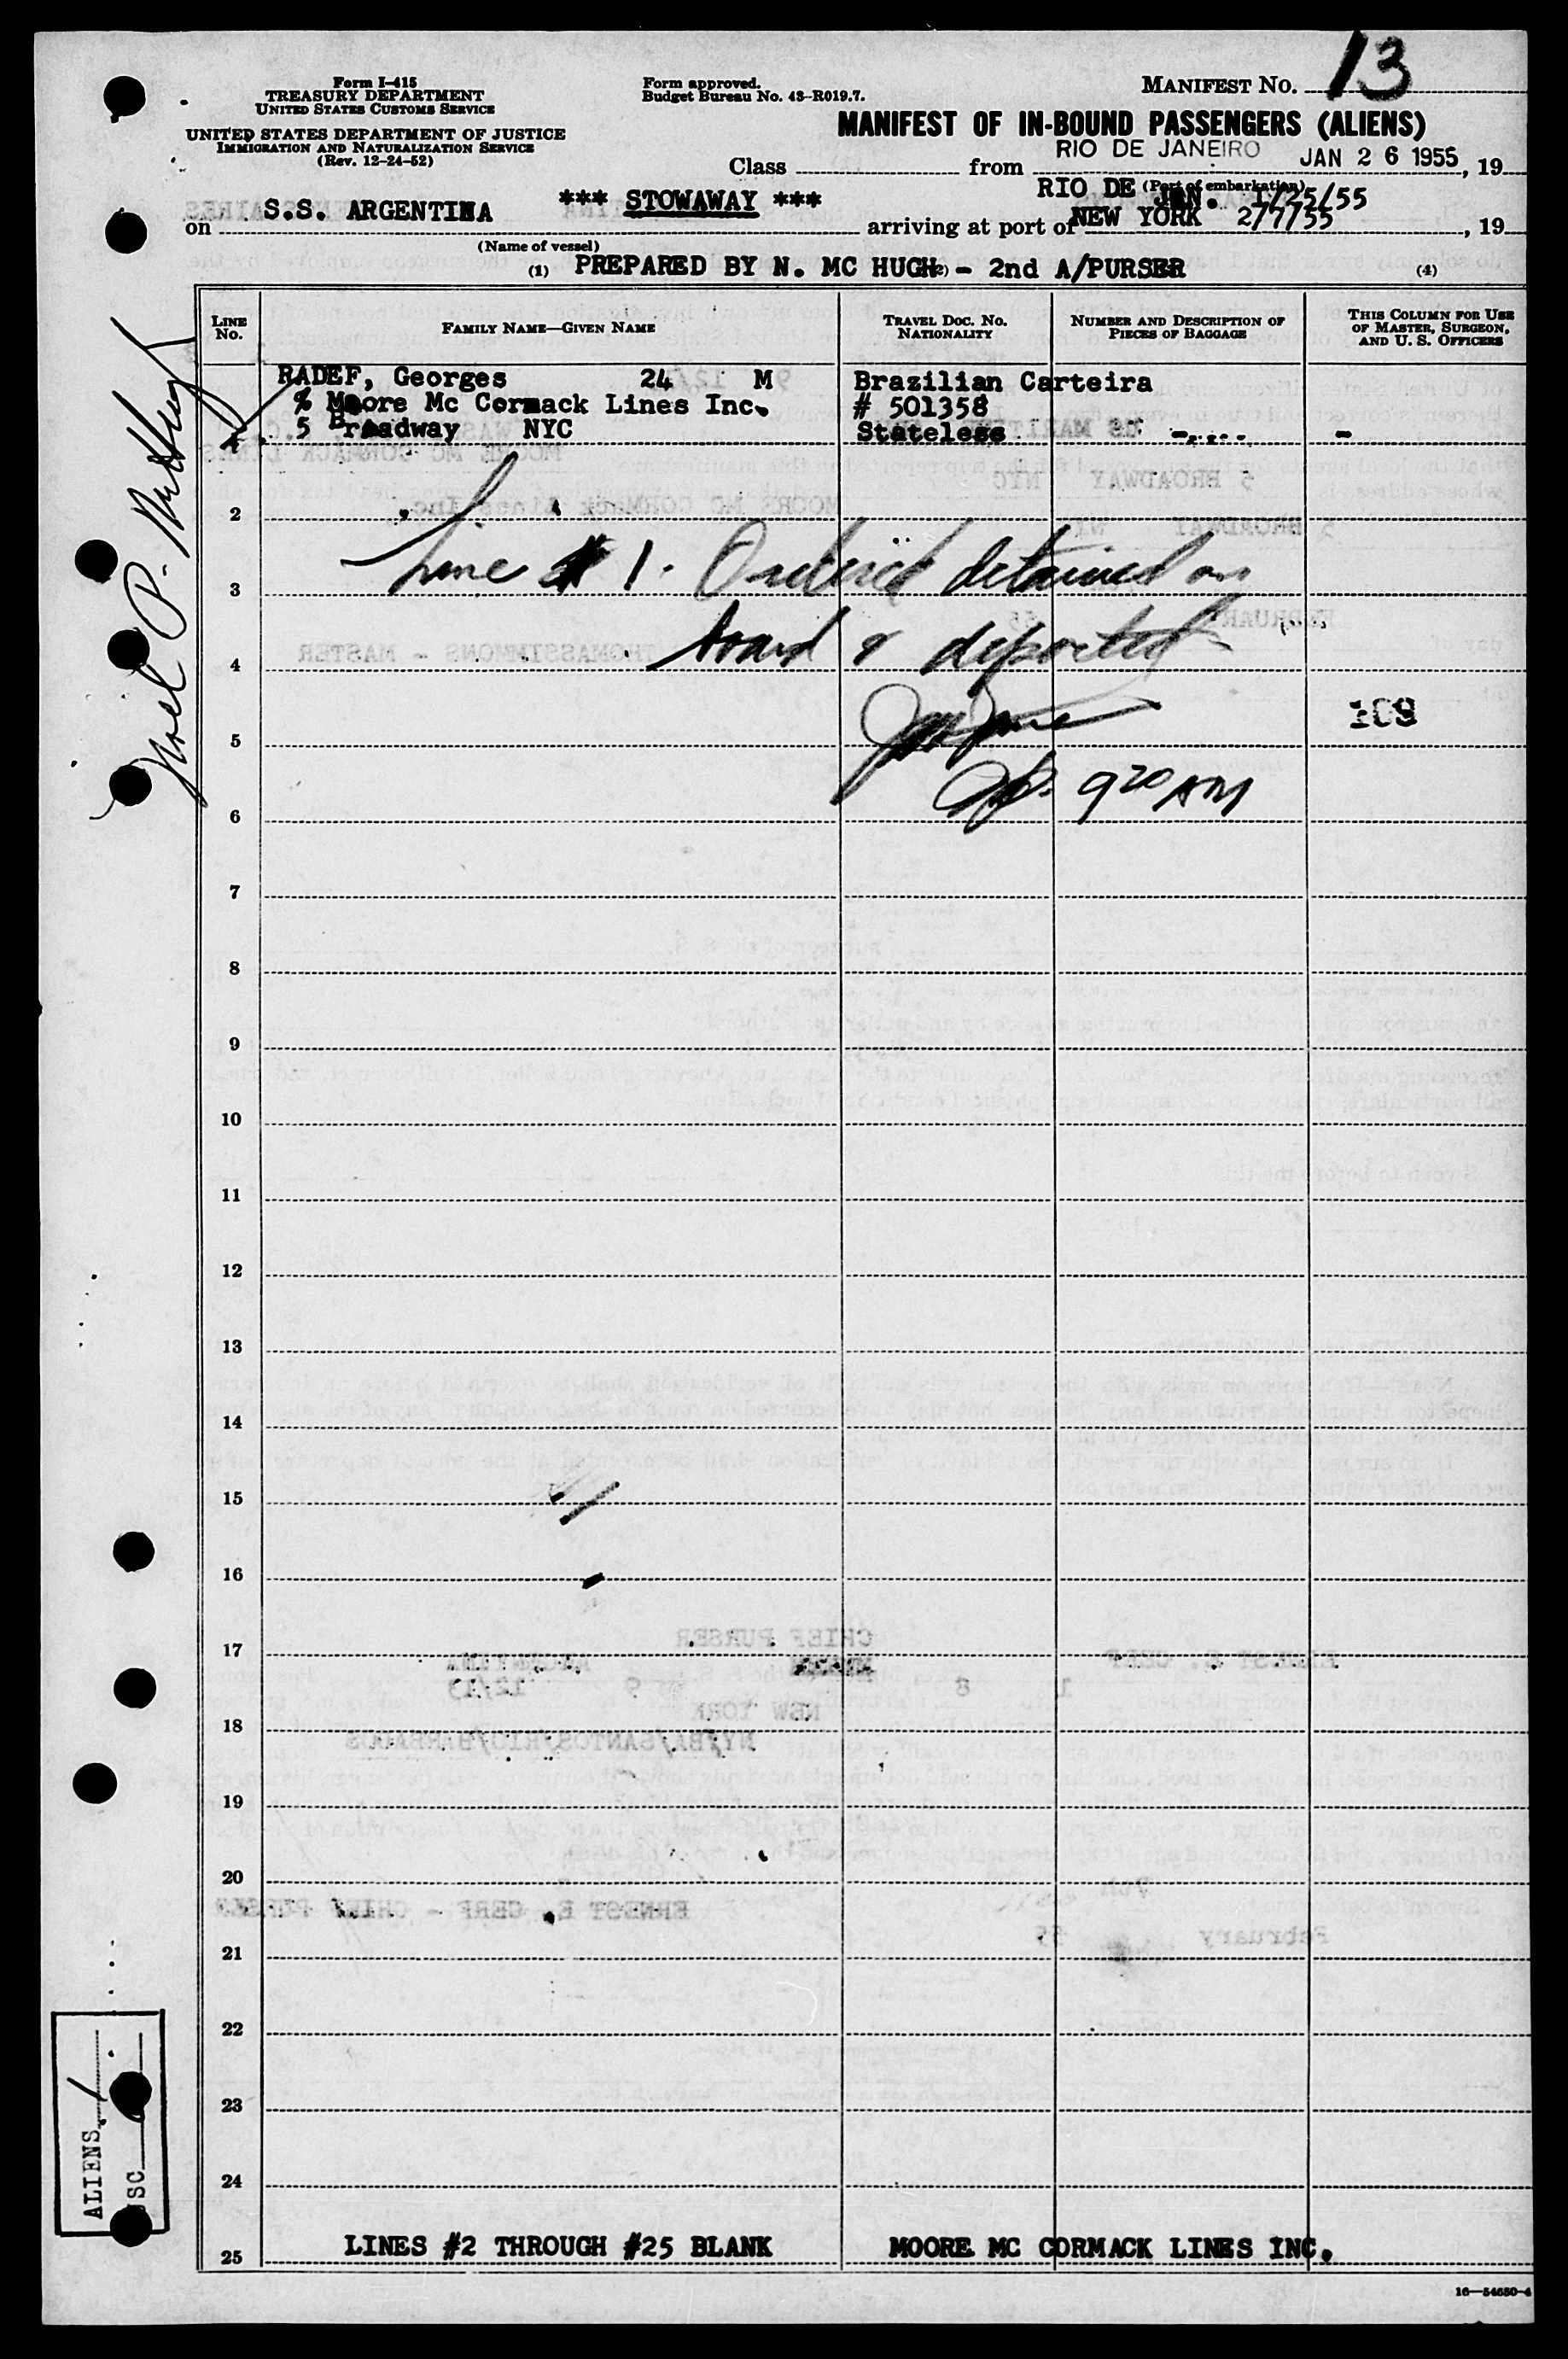 Form I-415
TREASURY DEPARTMENT
UNITED STATES CUSTOMS SERVICE
UNITED STATES DEPARTMENT OF JUSTICE
IMMIGRATION AND NATURALIZATION SERVICE
(Rev. 12-24-52)
Form approved.
Budget Bureau No. 43-R019.7.
MANIFEST NO. 13
MANIFEST OF IN-BOUND PASSENGERS (ALIENS)
RIO DE JANEIRO JAN 26 1955
Class from , 19
RIO DE JAN. 1/25/55
(Port of embarkation)
*** STOWAWAY ***
on S.S. ARGENTINA arriving at port of NEW YORK 2/7/55, 19
(Name of vessel)
(1) PREPARED BY N. MC HUGH - 2nd A/PURSER (4)
LINE No.
FAMILY NAME—GIVEN NAME
TRAVEL DOC. NO.
NATIONALITY
NUMBER AND DESCRIPTION OF
PIECES OF BAGGAGE
THIS COLUMN FOR USE
OF MASTER, SURGEON,
AND U. S. OFFICERS
RADEF, Georges 24 M Brazilian Carteira
% Moore Mc Cormack Lines Inc. # 501358
5 Broadway NYC Stateless - -
2
Line # 1. Ordered detained on
3
board & deported
4
109
5
9 20 AM
6
7
8
9
10
11
12
13
14
15
16
17
18
19
20
21
22
23
24
25 LINES #2 THROUGH #25 BLANK MOORE MC CORMACK LINES INC.
16—54650-4
Noel P.
ALIENS 1
USC